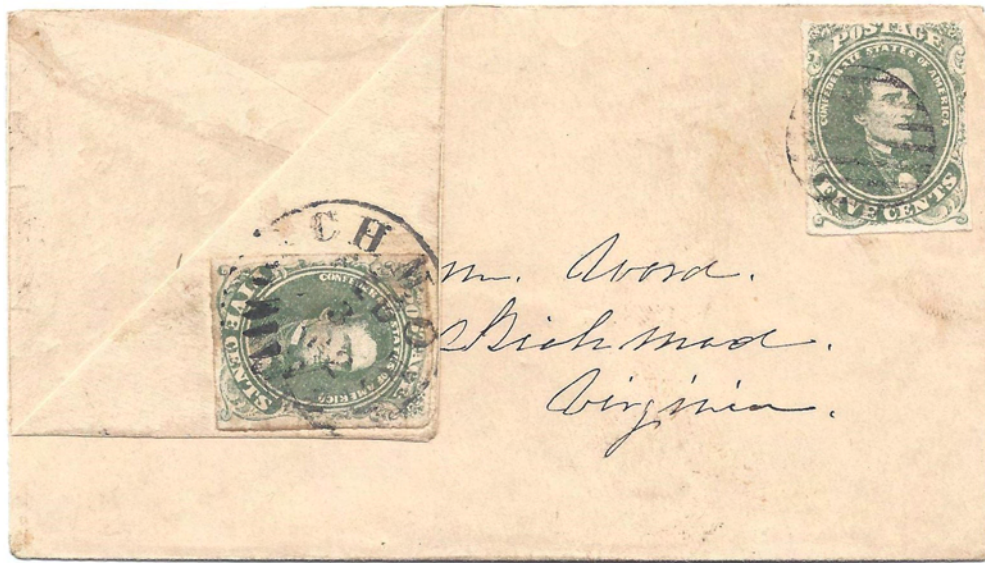 POSTAGE
CONFEDERATE STATES OF AMERICA
FIVE CENTS
CH
CONFEDERATE STATES OF AMERICA
FIVE CENTS
Word.
Richmod.
Virginia.